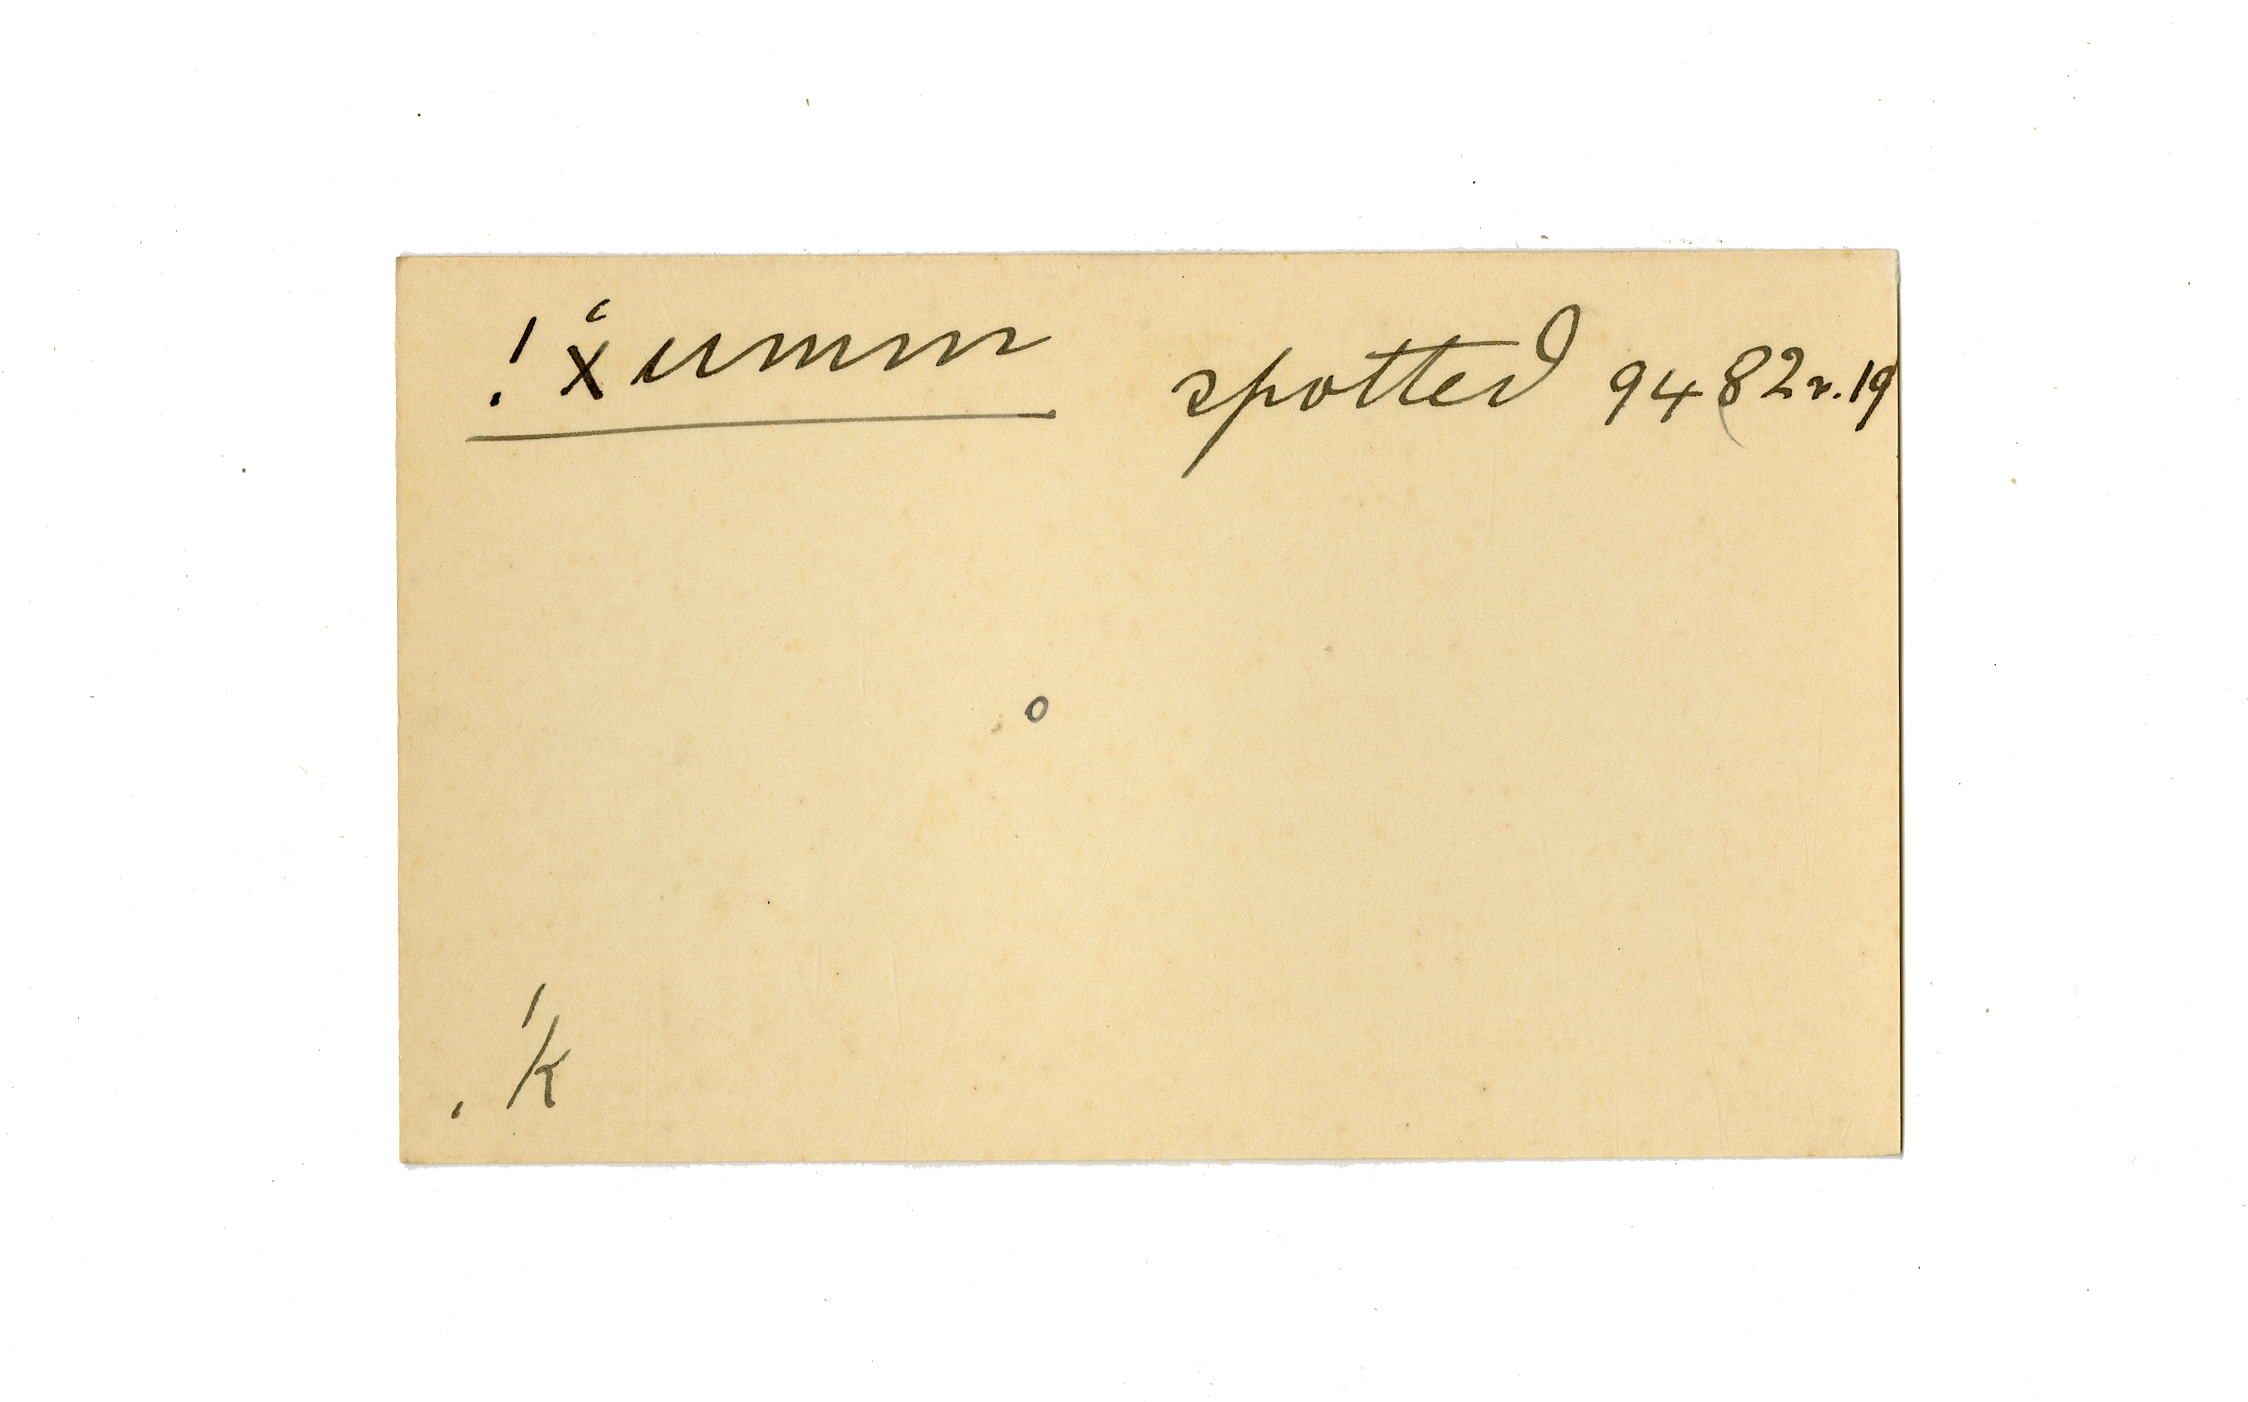 !xʿumm spotted 9482 r. 19
o
!k